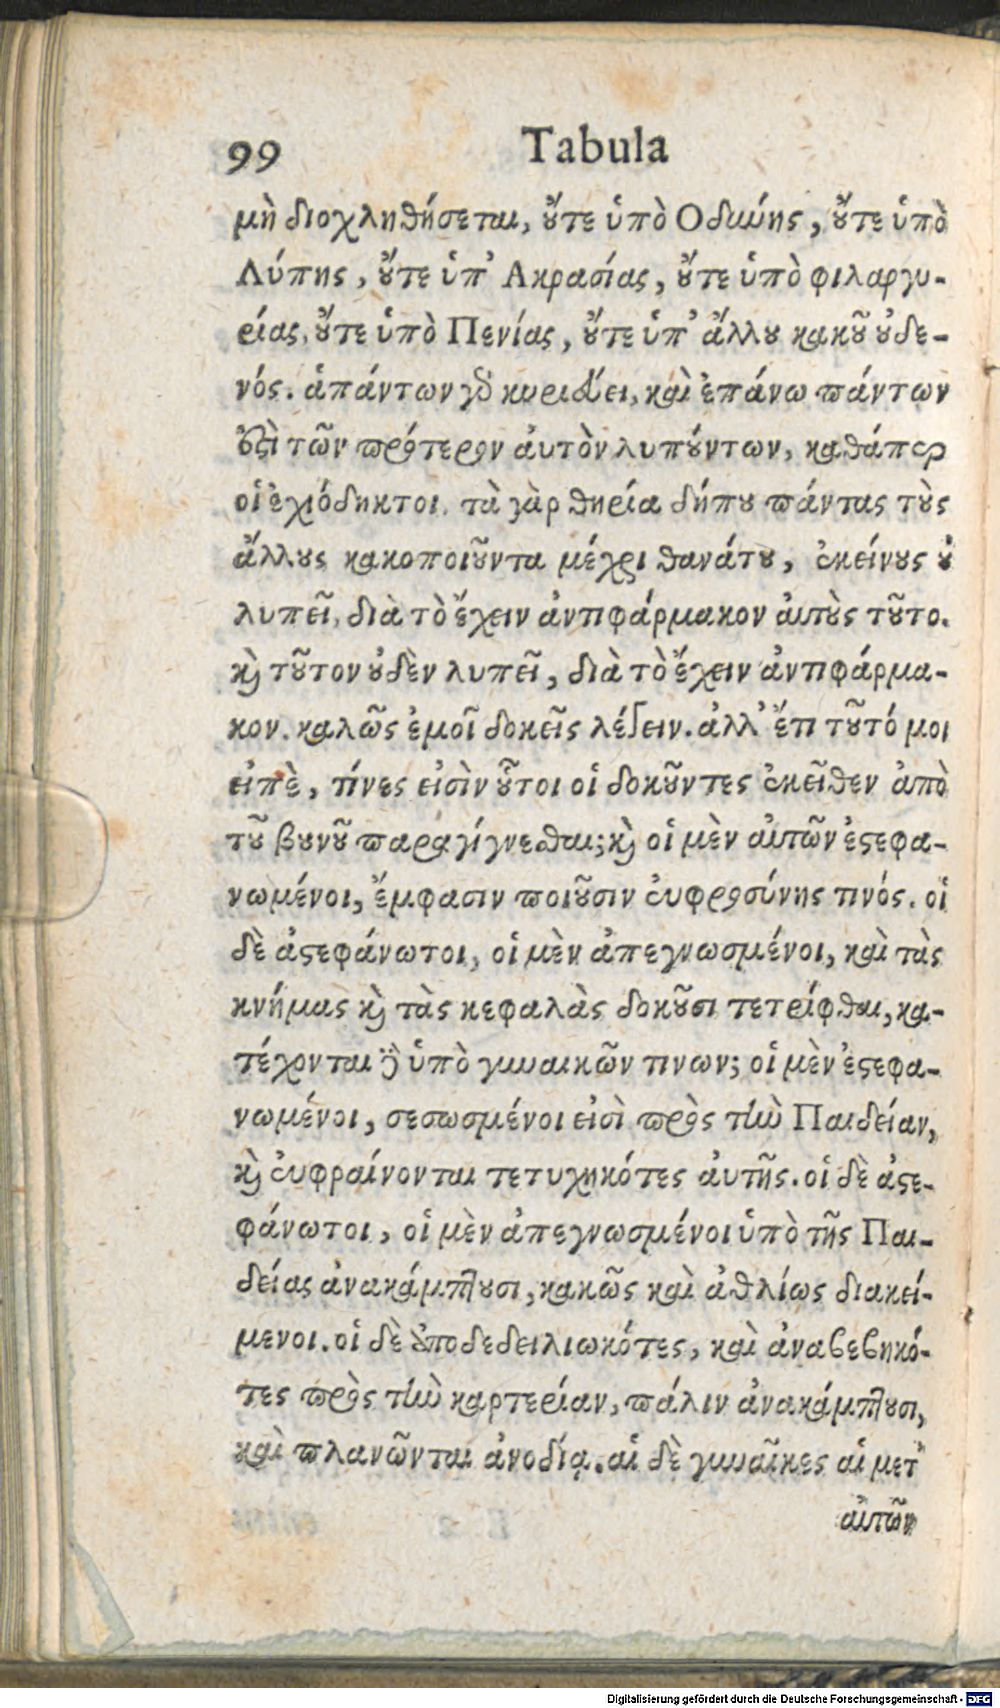 99 Tabula
μὴ διοχληθήσεται, ὔτε ὑπὸ Οδυύης, ὔτε ὑπὸ
Λύπης, ὔτε ὑπ' Ακρασίας, ὔτε ὑπὸ φιλαργυ-
ρίας, ὔτε ὑπὸ Πενίας, ὔτε ὑπ' ἄλλου κακοῦ οὐδε-
νός. ἁπάντων γὸ κυριεύει, καὶ ἐπάνω πάντων
ἐστὶ τῶν πρότερον ἀυτὸν λυπούντων, καθάπερ
οἱ ἐχιόδηκτοι. τὰ γὰρ θηρία δήπου πάντας τοὺς
ἄλλους κακοποιοῦντα μέχρι θανάτου, ἐκείνους οὐ
λυπεῖ, διὰ τὸ ἔχειν ἀντιφάρμακον αὐτοὺς τοῦτο.
καὶ τοῦτον οὐδὲν λυπεῖ, διὰ τὸ ἔχειν ἀντιφάρμα-
κον. καλῶς ἐμοῖ δοκεῖς λέγειν. ἀλλ' ἔτι τοῦτό μοι
εἰπὲ, τίνες εἰσὶν οὗτοι οἱ δοκοῦντες ἐκεῖθεν ἀπὸ
τοῦ βουνοῦ παραγίγνεσθαι; καὶ οἱ μὲν αὐτῶν ἐστεφα-
νωμένοι, ἔμφασιν ποιοῦσιν ἐυφροσύνης τινός. οἱ
δὲ ἀστεφάνωτοι, οἱ μὲν ἀπεγνωσμένοι, καὶ τὰς
κνήμας καὶ τὰς κεφαλὰς δοκοῦσι τετρίφθαι, κα-
τέχονται δὲ ὑπὸ γυναικῶν τινων; οἱ μὲν ἐστεφα-
νωμένοι, σεσωσμένοι εἰσὶ πρὸς τὴν Παιδείαν,
καὶ ἐυφραίνονται τετυχηκότες ἀυτῆς. οἱ δὲ ἀστε-
φάνωτοι, οἱ μὲν ἀπεγνωσμένοι ὑπὸ τῆς Παι-
δείας ἀνακάμπτουσι, κακῶς καὶ ἀθλίως διακεί-
μενοι. οἱ δὲ ἀποδεδειλιωκότες, καὶ ἀναβεβηκό-
τες πρὸς τὴν καρτερίαν, πάλιν ἀνακάμπτουσι,
καὶ πλανῶνται ἀνοδίᾳ. αἱ δὲ γυναῖκες αἱ μετ'
αὐτῶν